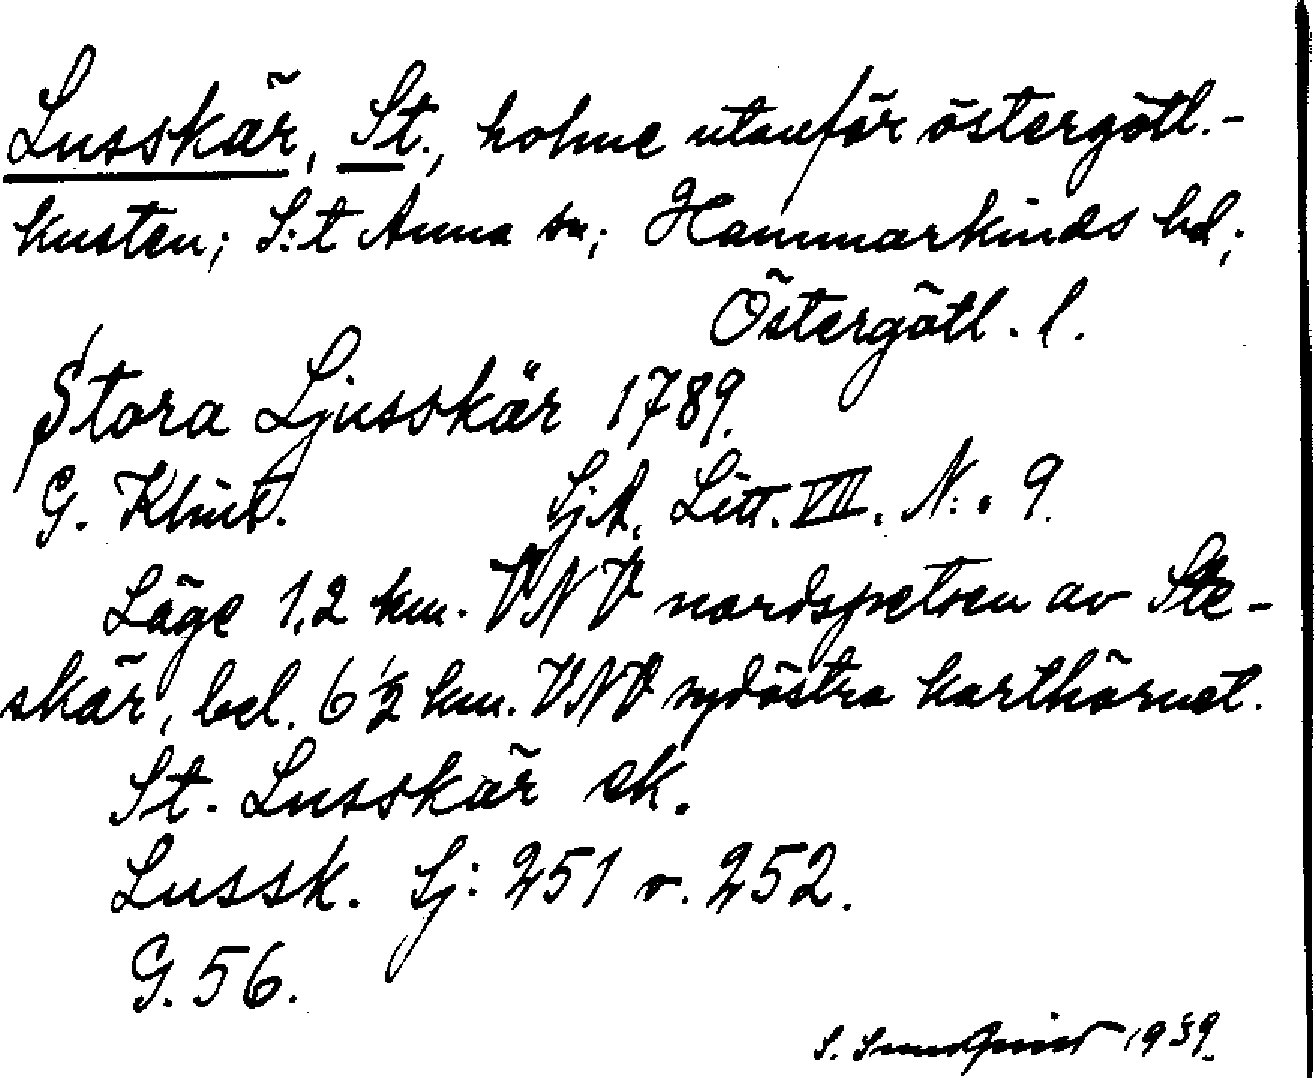 Lusskär, St., holme utanför östergötl.-
kusten; S:t Anna sn; Hammarkinds hd;
Östergötl. l.
Stora Ljusskär 1789.
G. Klint. SjA. Litt. VII. N:o 9.
Läge 1,2 km. VNV nordspetsen av Ste-
skär, bel. 6 1/2 km. VNV sydöstra karthörnet.
St. Lusskär ek.
Lussk. Sj: 251 o. 252.
G. 56.
S. 1939.